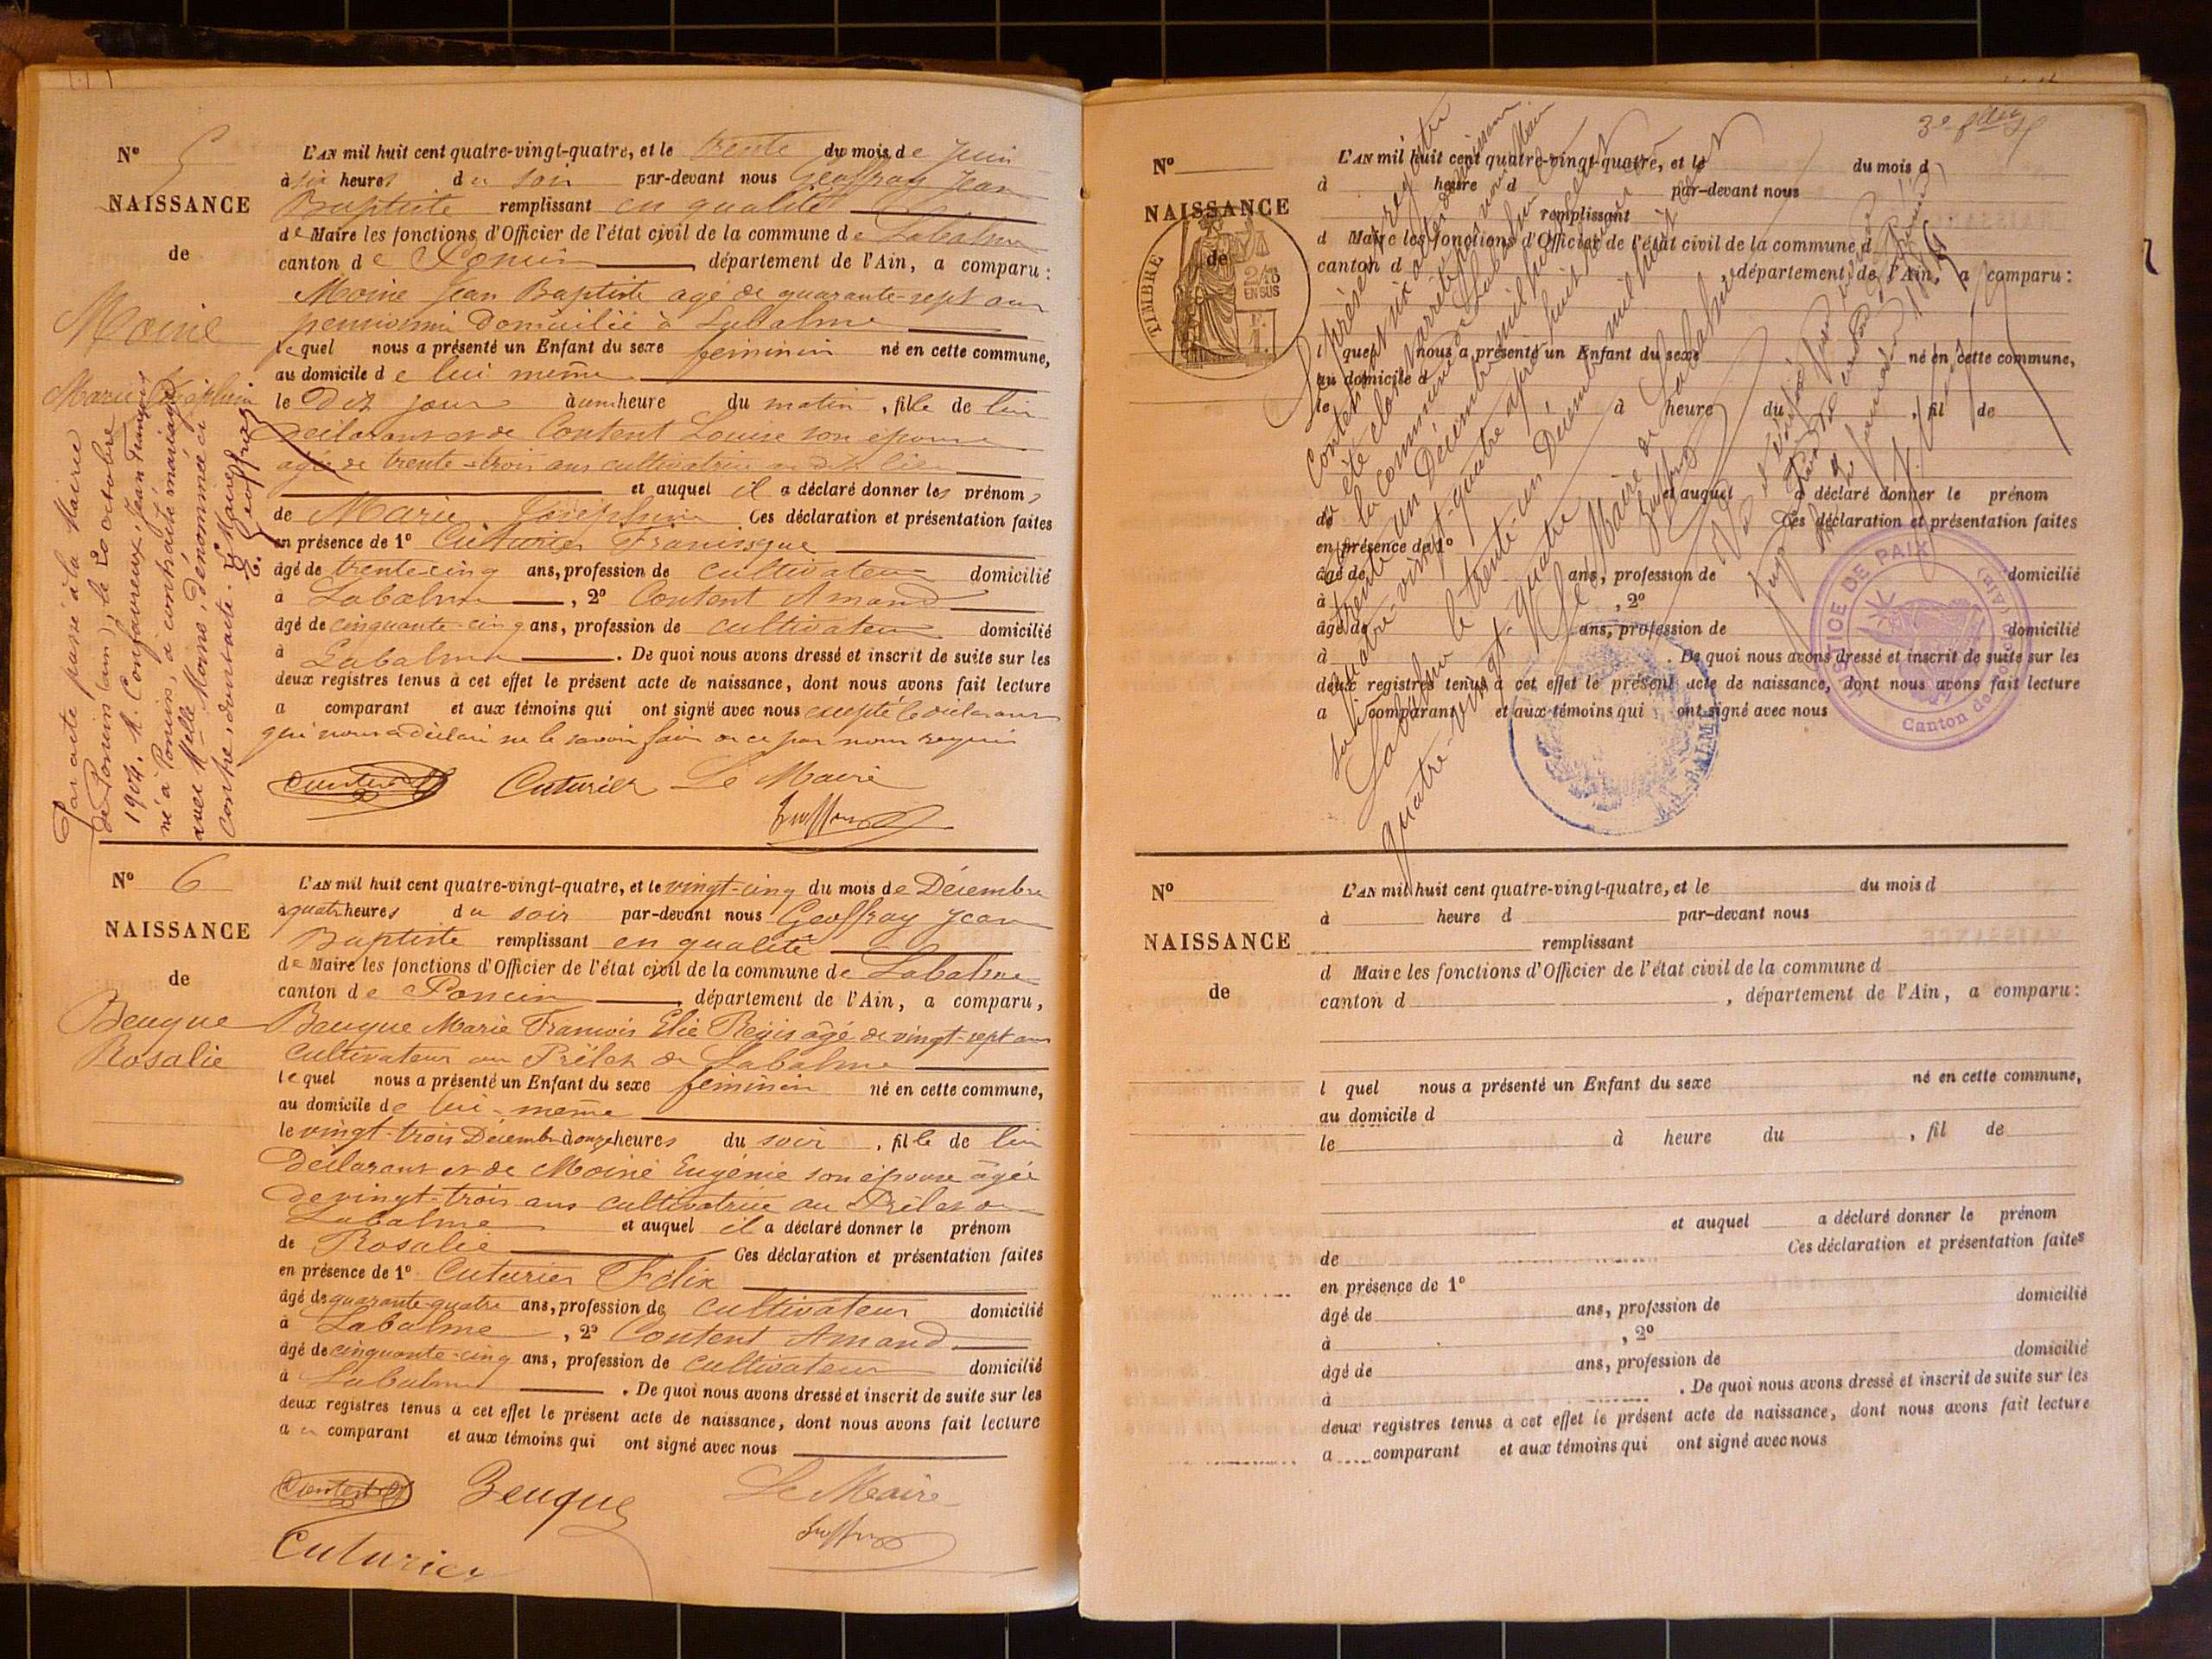 Nº 5
NAISSANCE
de
Moine
Marie Joséphine
Par acte passé à la Mairie
de Poncin (ain), le 20 octobre
1904, M. Confavreux, Jean François
né à Poncin, a contracté mariage
avec Melle Moine, dénommée ci
contre, dont acte. Le Maire
E. Geoffray
L'AN mil huit cent quatre-vingt-quatre, et le trente du mois de Juin
à six heures du soir par-devant nous Geoffray Jean
Baptiste remplissant en qualité
de Maire les fonctions d'Officier de l'état civil de la commune de Labalme
canton de Poncin, département de l'Ain, a comparu :
Moine Jean Baptiste agé de quarante-sept ans
domicilié à Labalme
lequel nous a présenté un Enfant du sexe feminin né en cette commune,
au domicile de lui même
le dit jour à une heure du matin, fille de lui
déclarant et de Content Louise son épouse
agée de trente-trois ans cultivatrice au dit lieu
et auquel il a déclaré donner les prénoms
de Marie Joséphine Ces déclaration et présentation faites
en présence de 1º Cuturier Francisque
âgé de trente-cinq ans, profession de cultivateur domicilié
à Labalme, 2º Content Amand
âgé de cinquante-cinq ans, profession de cultivateur domicilié
à Labalme. De quoi nous avons dressé et inscrit de suite sur les
deux registres tenus à cet effet le présent acte de naissance, dont nous avons fait lecture
a comparant et aux témoins qui ont signé avec nous excepté le déclarant
qui nous a déclaré ne le savoir faire de ce par nous requis
Cuturier Le Maire
Geoffray
Nº 6
NAISSANCE
de
Beuque
Rosalie
L'AN mil huit cent quatre-vingt-quatre, et le vingt-cinq du mois de Décembre
à quatre heures du soir par-devant nous Geoffray Jean
Baptiste remplissant en qualité
de Maire les fonctions d'Officier de l'état civil de la commune de Labalme
canton de Poncin, département de l'Ain, a comparu,
Beuque Marie François Elie Régis âgé de vingt-sept ans
cultivateur au Prélet de Labalme
lequel nous a présenté un Enfant du sexe féminin né en cette commune,
au domicile de lui-même
le vingt-trois Décembre à onze heures du soir, fille de lui
déclarant et de Moine Eugénie son épouse âgée
de vingt-trois ans cultivatrice au Prélet de
Labalme et auquel il a déclaré donner le prénom
de Rosalie Ces déclaration et présentation faites
en présence de 1º Cuturier Félix
âgé de quarante-quatre ans, profession de cultivateur domicilié
à Labalme, 2º Content Amand
âgé de cinquante-cinq ans, profession de cultivateur domicilié
à Labalme. De quoi nous avons dressé et inscrit de suite sur les
deux registres tenus à cet effet le présent acte de naissance, dont nous avons fait lecture
au comparant et aux témoins qui ont signé avec nous
Beuque Le Maire
Cuturier Geoffray
Nº
NAISSANCE
de
TIMBRE
2/10
EN SUS
L'AN mil huit cent quatre-vingt-quatre, et le du mois d
à heure d par-devant nous
remplissant
d Maire les fonctions d'Officier de l'état civil de la commune d
canton d, département de l'Ain, a comparu :
l quel nous a présenté un Enfant du sexe né en cette commune,
au domicile d
le à heure du, fil de
et auquel a déclaré donner le prénom
de Ces déclaration et présentation faites
en présence de 1º
âgé de ans, profession de domicilié
à, 2º
âgé de ans, profession de domicilié
à. De quoi nous avons dressé et inscrit de suite sur les
deux registres tenus à cet effet le présent acte de naissance, dont nous avons fait lecture
a comparant et aux témoins qui ont signé avec nous
Le présent registre
contenant six actes de naissance
a été clos et arrêté par nous Maire
de la commune de Labalme le
trente-un Décembre mil huit cent
quatre-vingt-quatre après
Labalme le trente-un Décembre mil huit cent
quatre-vingt-quatre
Le Maire de Labalme
Geoffray
JUSTICE DE PAIX
Canton de (Ain)
LABALME
Nº
NAISSANCE
de
L'AN mil huit cent quatre-vingt-quatre, et le du mois d
à heure d par-devant nous
remplissant
d Maire les fonctions d'Officier de l'état civil de la commune d
canton d, département de l'Ain, a comparu :
l quel nous a présenté un Enfant du sexe né en cette commune,
au domicile d
le à heure du, fil de
et auquel a déclaré donner le prénom
de Ces déclaration et présentation faites
en présence de 1º
âgé de ans, profession de domicilié
à, 2º
âgé de ans, profession de domicilié
à. De quoi nous avons dressé et inscrit de suite sur les
deux registres tenus à cet effet le présent acte de naissance, dont nous avons fait lecture
a comparant et aux témoins qui ont signé avec nous